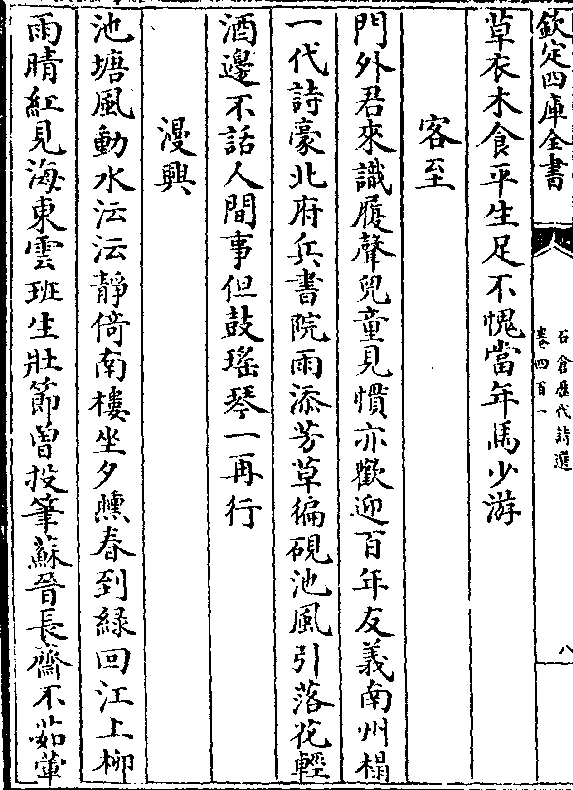 欽定四庫全書
石倉歷代詩選
卷四百一
八
草衣木食平生足不愧當年馬少游
客至
門外君來識履聲兒童見慣亦歡迎百年友義南州榻
一代詩豪北府兵書院雨添芳草徧硯池風引落花輕
酒邊不話人間事但鼓瑤琴一再行
漫興
池塘風動水沄沄靜倚南樓坐夕曛春到綠回江上柳
雨晴紅見海東雲班生壯節曽投筆蘇晉長齋不茹葷